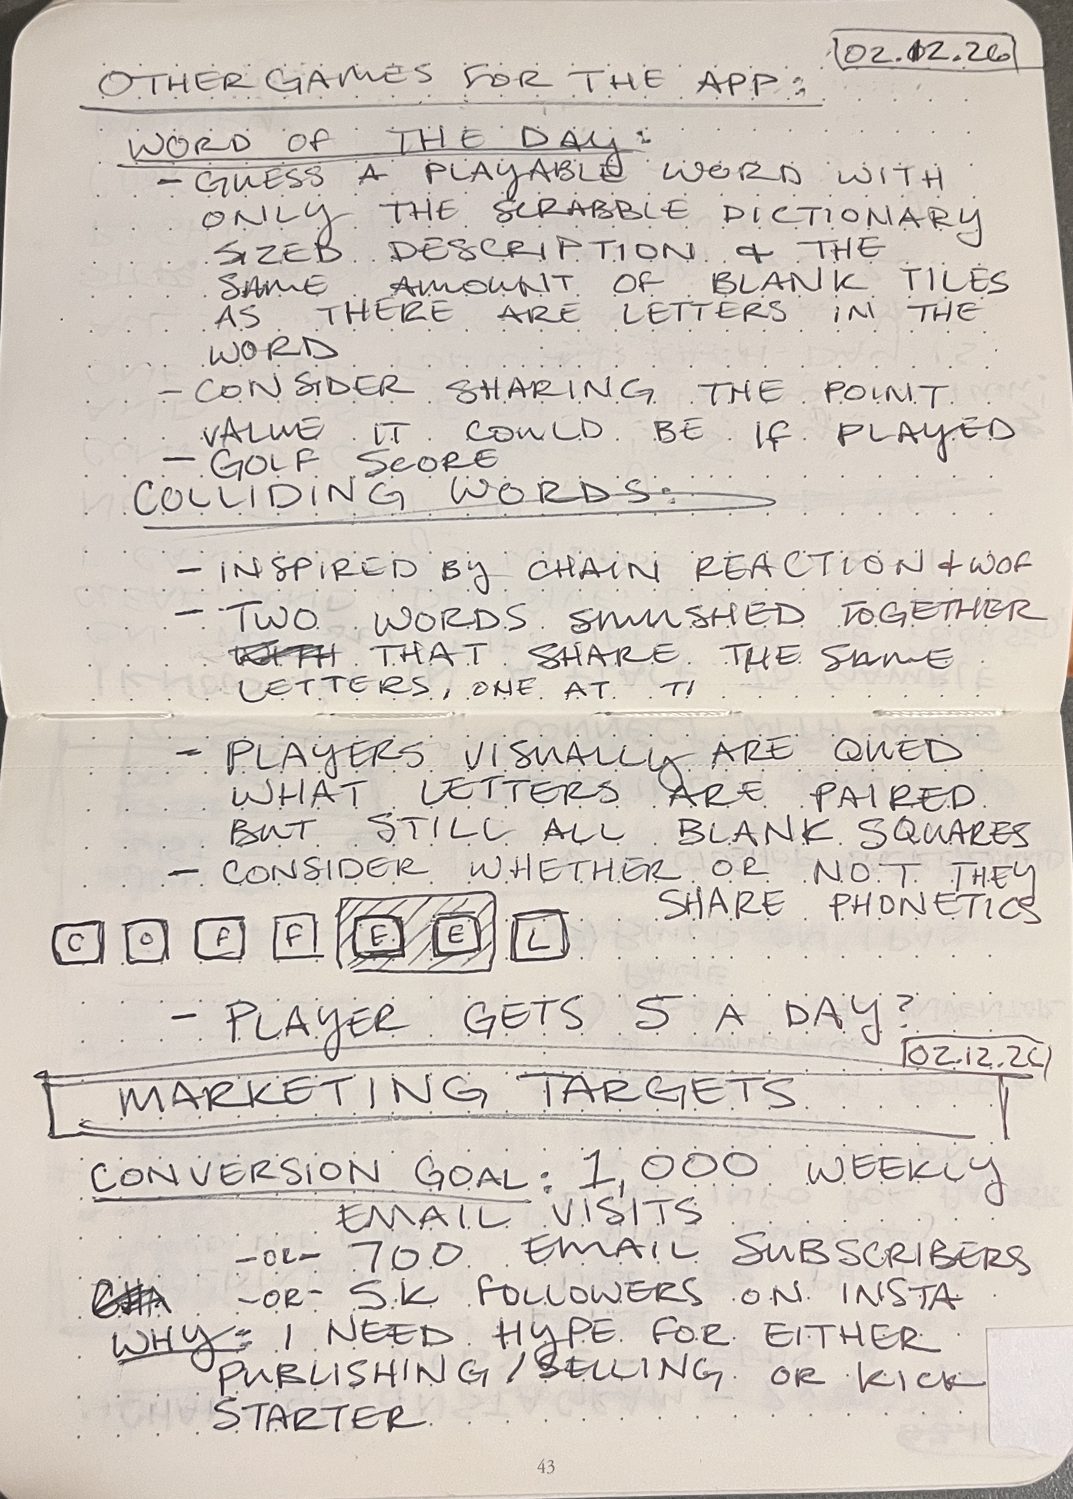 02.12.26
OTHER GAMES FOR THE APP:
WORD OF THE DAY:
- GUESS A PLAYABLE WORD WITH
ONLY THE SCRABBLE DICTIONARY
SIZED DESCRIPTION & THE
SAME AMOUNT OF BLANK TILES
AS THERE ARE LETTERS IN THE
WORD
- CONSIDER SHARING THE POINT
VALUE IT COULD BE IF PLAYED
- GOLF SCORE
COLLIDING WORDS:
- INSPIRED BY CHAIN REACTION & WOF
- TWO WORDS SMUSHED TOGETHER
THAT SHARE THE SAME
LETTERS, ONE AT
- PLAYERS VISUALLY ARE QUED
WHAT LETTERS ARE PAIRED
BUT STILL ALL BLANK SQUARES
- CONSIDER WHETHER OR NOT THEY
SHARE PHONETICS
C O F F E E L
- PLAYER GETS 5 A DAY?
02.12.26
MARKETING TARGETS
CONVERSION GOAL: 1,000 WEEKLY
EMAIL VISITS
-OR- 700 EMAIL SUBSCRIBERS
-OR- 5K FOLLOWERS ON INSTA
WHY: I NEED HYPE FOR EITHER
PUBLISHING/SELLING OR KICK
STARTER
43